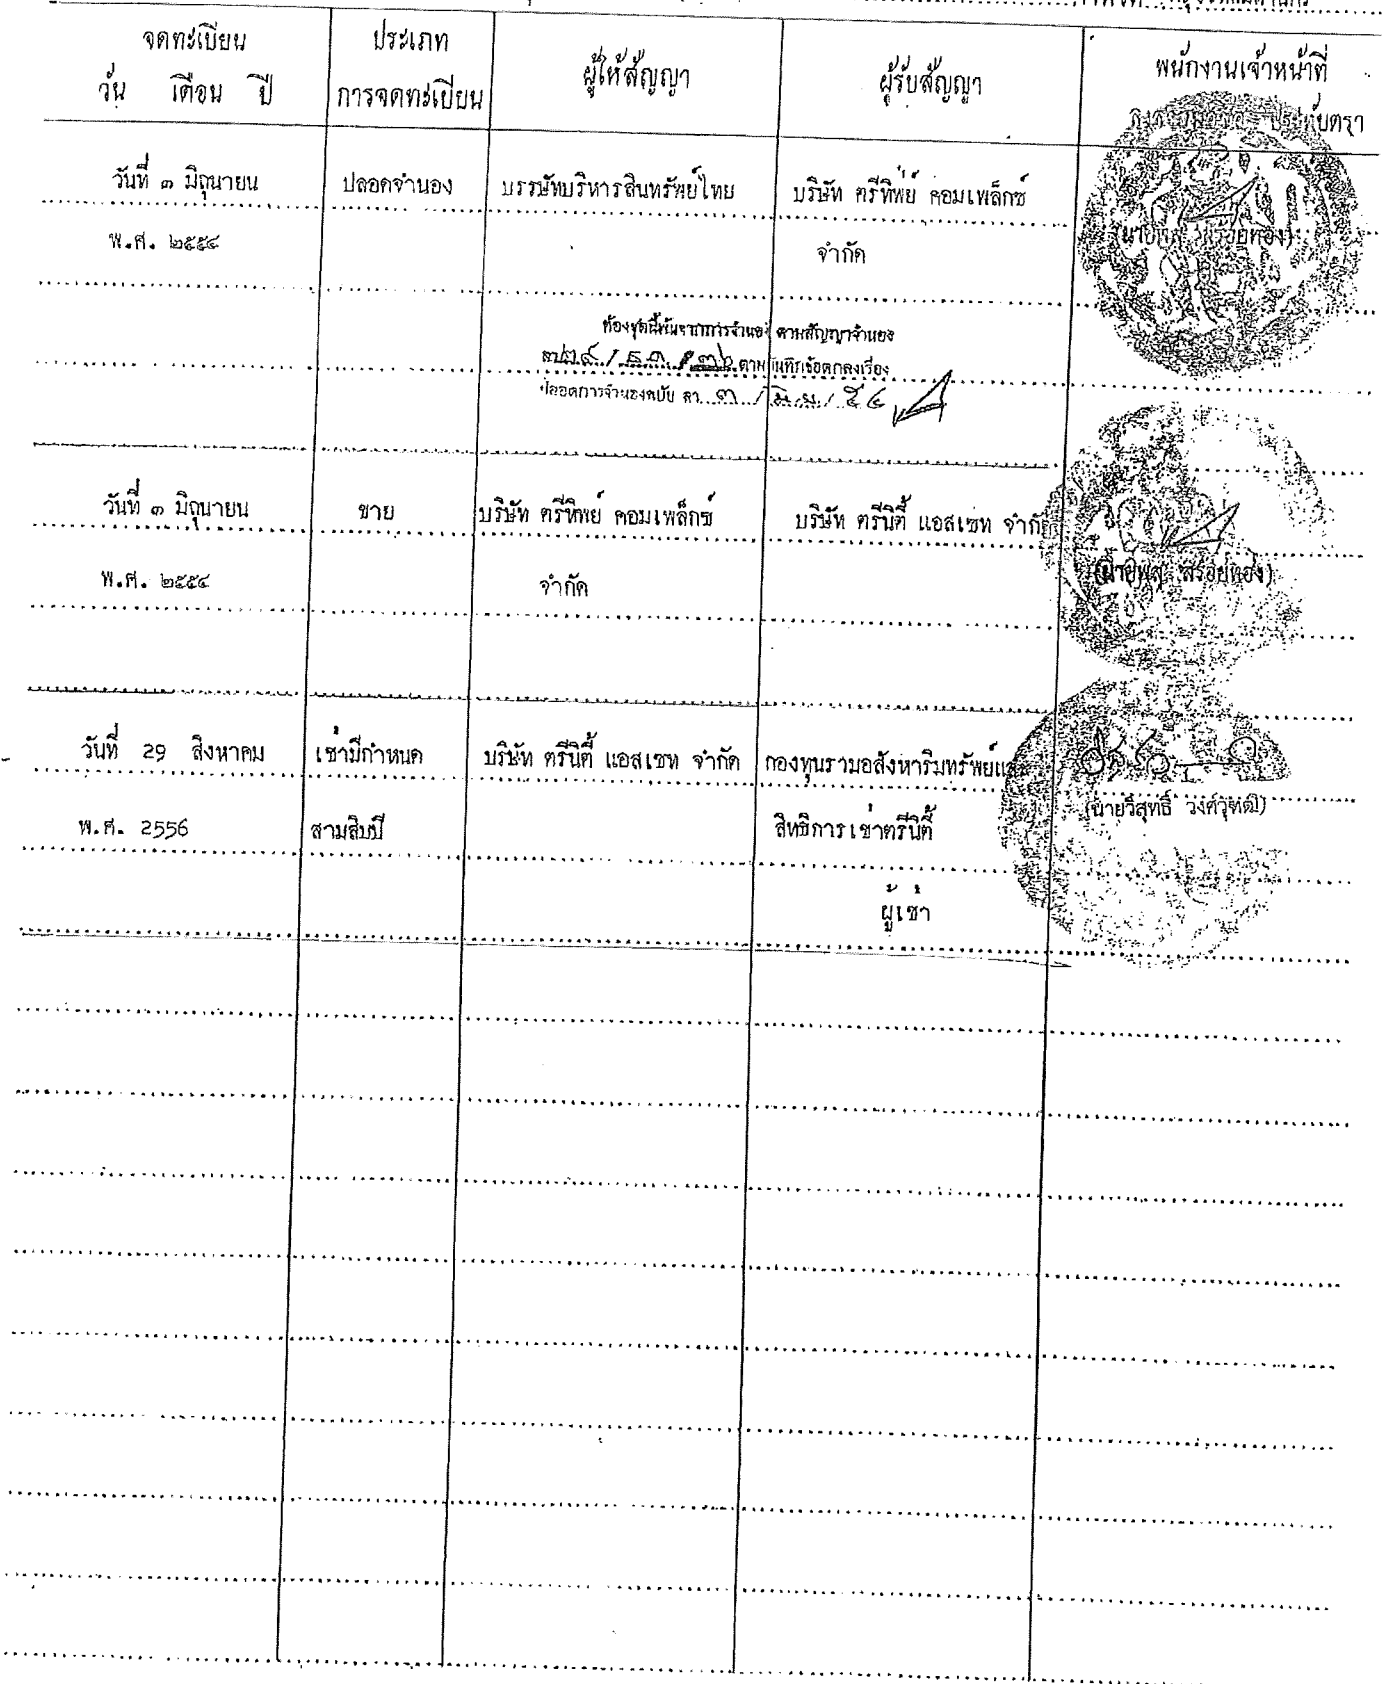 จดทะเบียน
วัน เดือน ปี
ประเภท
การจดทะเบียน
ผู้ให้สัญญา
ผู้รับสัญญา
พนักงานเจ้าหน้าที่
ประทับตรา
วันที่ ๓ มิถุนายน
พ.ศ. ๒๕๕๔
ปลอดจำนอง
บรรษัทบริหารสินทรัพย์ไทย
บริษัท ตรีทิพย์ คอมเพล็กซ์
จำกัด
ห้องชุดนี้พ้นจากการจำนอง ตามสัญญาจำนอง
ตามบันทึกข้อตกลงเรื่อง
ปลอดการจำนองฉบับ ลว. ๓ / มิ.ย. / ๕๔
วันที่ ๓ มิถุนายน
พ.ศ. ๒๕๕๔
ขาย
บริษัท ตรีทิพย์ คอมเพล็กซ์
จำกัด
บริษัท ตรีนิตี้ แอสเซท จำกัด
สร้อยทอง)
วันที่ 29 สิงหาคม
พ.ศ. 2556
เช่ามีกำหนด
สามสิบปี
บริษัท ตรีนิตี้ แอสเซท จำกัด
กองทุนรวมอสังหาริมทรัพย์และ
สิทธิการเช่าตรีนิตี้
ผู้เช่า
(นายวิสุทธิ์ วงศ์วุฑฒิ)